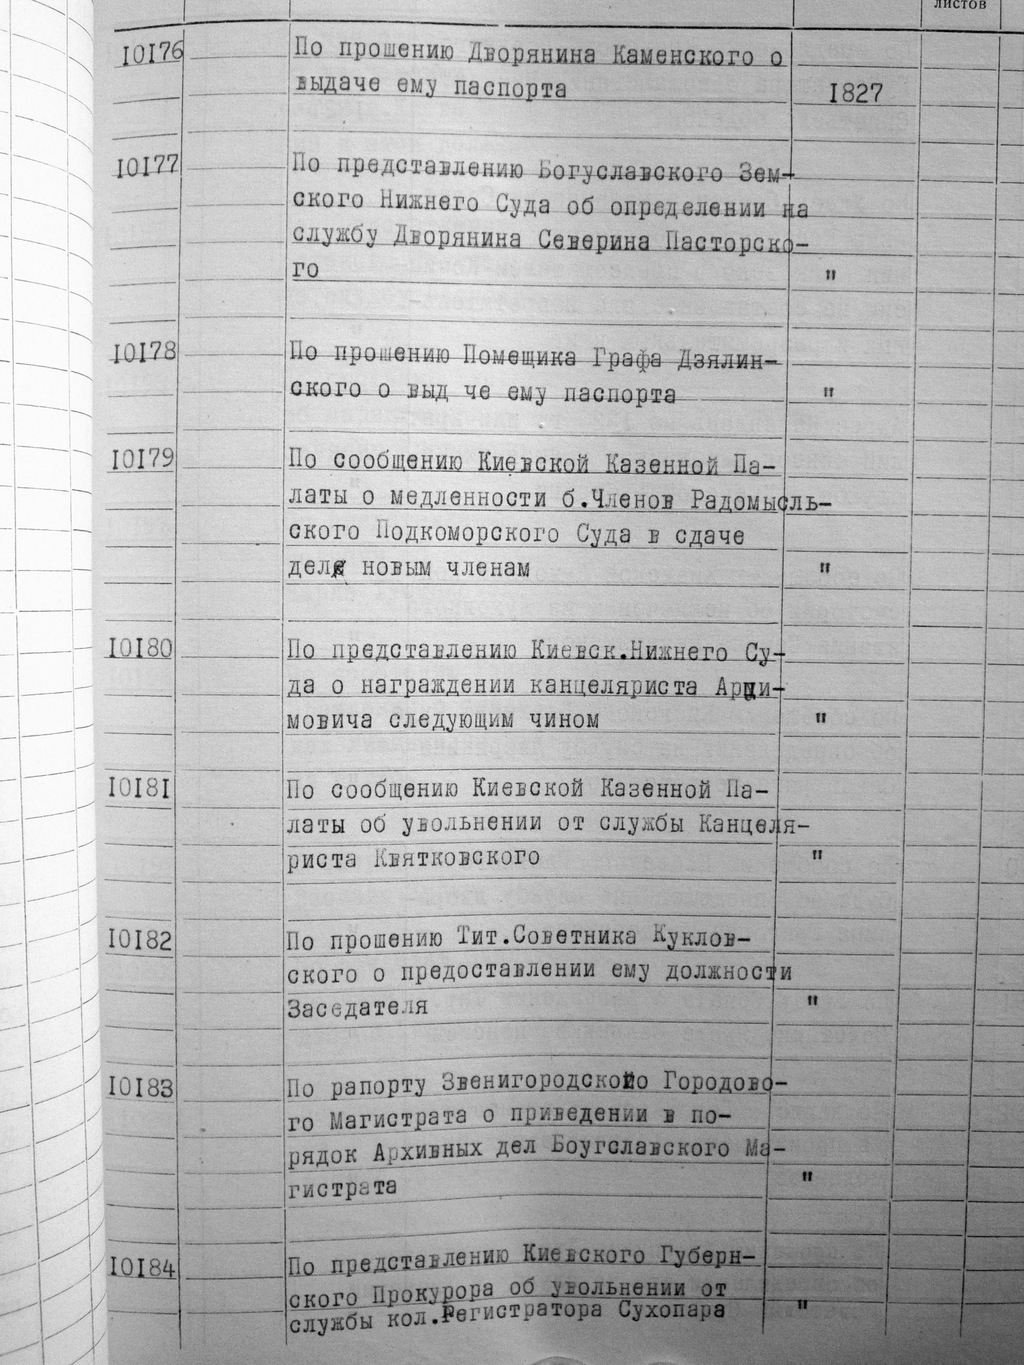 листов
10176 По прошению Дворянина Каменского о
выдаче ему паспорта 1827
10177 По представлению Богуславского Зем-
ского Нижнего Суда об определении на
службу Дворянина Северина Пасторско-
го "
10178 По прошению Помещика Графа Дзялин-
ского о выд че ему паспорта "
10179 По сообщению Киевской Казенной Па-
латы о медленности б.Членов Радомысль-
ского Подкоморского Суда в сдаче
дел новым членам "
10180 По представлению Киевск.Нижнего Су-
да о награждении канцеляриста Арци-
мовича следующим чином "
10181 По сообщению Киевской Казенной Па-
латы об увольнении от службы Канцеля-
риста Квятковского "
10182 По прошению Тит.Советника Куклов-
ского о предоставлении ему должности
Заседателя "
10183 По рапорту Звенигородского Городово-
го Магистрата о приведении в по-
рядок Архивных дел Боугславского Ма-
гистрата "
10184 По представлению Киевского Губерн-
ского Прокурора об увольнении от
службы кол.Регистратора Сухопара "